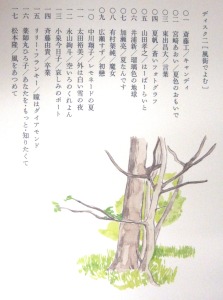 ディスク二［風街でよむ］
〇一 斎藤工／キャンディ
〇二 宮﨑あおい／夏色のおもいで
〇三 東出昌大／言葉
〇四 中村蒼／蒼いフォトグラフ
〇五 山田孝之／はーばーらいと
〇六 井浦新／瑠璃色の地球
〇七 加瀬亮／夏なんです
〇八 有村架純／魔女
〇九 広瀬すず／初戀
一〇 中川翔子／レモネードの夏
一一 太田裕美／外は白い雪の夜
一二 永山絢斗／空いろのくれよん
一三 小泉今日子／哀しみのボート
一四 斉藤由貴／卒業
一五 リリー・フランキー／瞳はダイアモンド
一六 薬師丸ひろ子／あなたを・もっと・知りたくて
一七 松本隆／風をあつめて